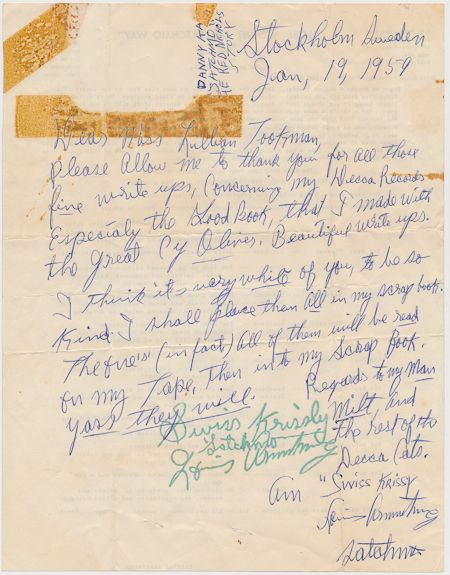 DANNY KA
SATCHMO
THE RED NICHOLS
STORY
Stockholm Sweden
Jan, 19, 1959
Dear Miss Lillian Tookman,
Please Allow me to thank you for all those
fine write ups, Concerning my Decca Records
Especialy the Good Book, that I made With
the great Cy Oliver. Beautiful write ups.
I think it's very of you, to be so
Kind. I shall place them All in my scrap book.
(in fact) All of them will be read
on my Tape, then in to my Scrap Book.
yass they will.
Regards to my Man
Milt, and
the rest of the
Decca Cats.
Swiss Krissly
Satchmo
Louis Armstrong
Am "Swiss Krissy
Louis Armstrong
Satchmo